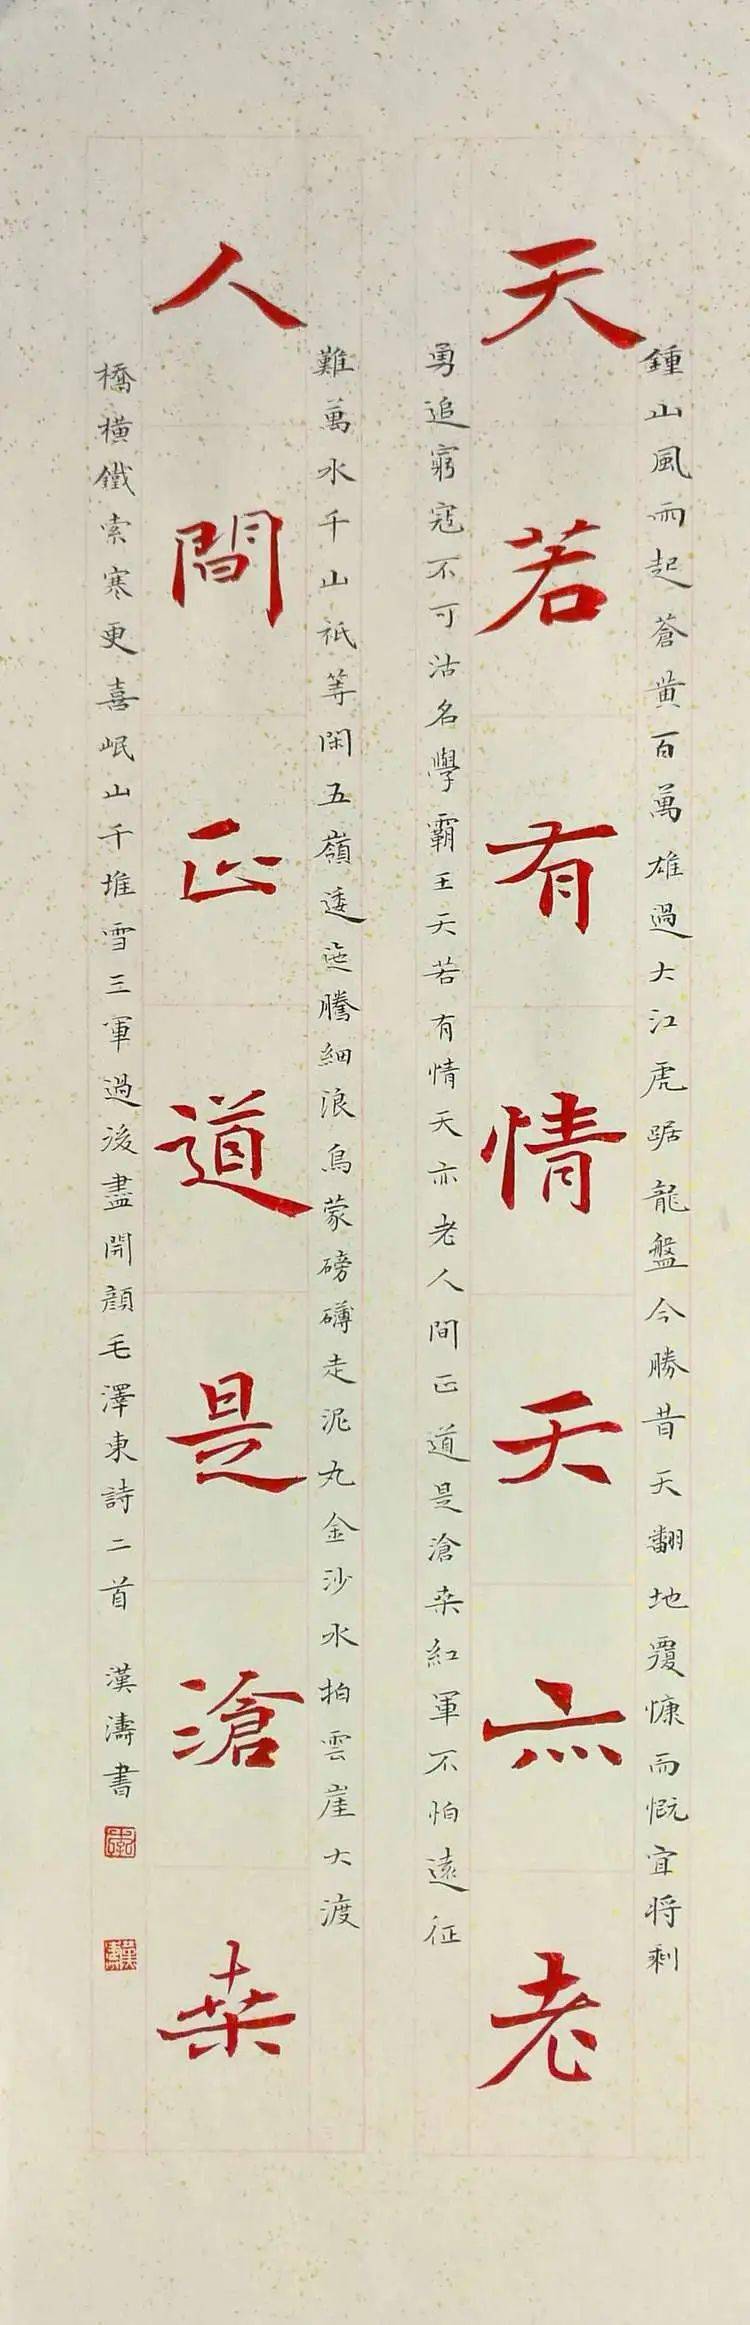 鍾山風雨起蒼黃百萬雄過大江虎踞龍盤今勝昔天翻地覆慷而慨宜將剩
天若有情天亦老
勇追窮寇不可沽名學霸王天若有情天亦老人間正道是滄桒紅軍不怕遠征
難萬水千山袛等閑五嶺逶迤騰細浪烏蒙磅礴走泥丸金沙水拍雲崖大渡
人間正道是滄桒
橋橫鐵索寒更喜岷山千堆雪三軍過後盡開顏毛澤東詩二首 漢濤書